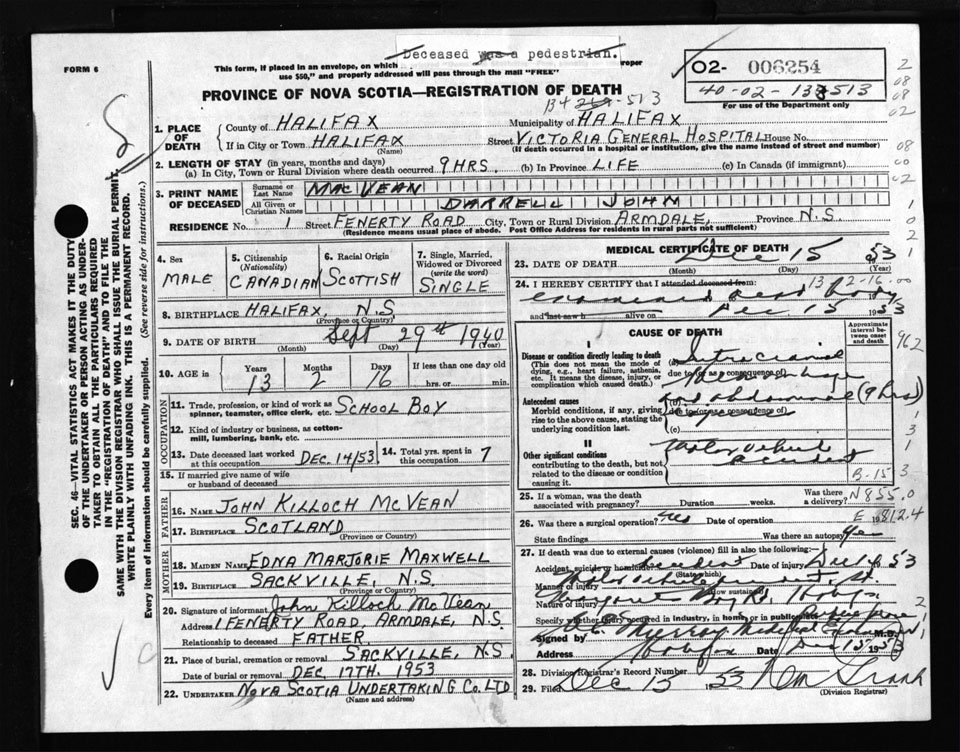 Deceased was a pedestrian.
FORM 6
This form, if placed in an envelope, on which proper
use $50," and properly addressed will pass through the mail "FREE"
PROVINCE OF NOVA SCOTIA—REGISTRATION OF DEATH
O2- 006254
40-02-13 513
For use of the Department only
134 513
1. PLACE OF DEATH
County of HALIFAX Municipality of HALIFAX
If in City or Town HALIFAX Street VICTORIA GENERAL HOSPITAL House No.
(Name) (If death occurred in a hospital or institution, give the name instead of street and number)
2. LENGTH OF STAY (in years, months and days)
(a) In City, Town or Rural Division where death occurred 9 HRS. (b) In Province LIFE (c) In Canada (if immigrant)
3. PRINT NAME OF DECEASED
Surname or Last Name MAC VEAN
All Given or Christian Names DARRELL JOHN
RESIDENCE No. 1 Street FENERTY ROAD City, Town or Rural Division ARMDALE, Province N.S.
(Residence means usual place of abode. Post Office Address for residents in rural parts not sufficient)
4. Sex MALE
5. Citizenship (Nationality) CANADIAN
6. Racial Origin SCOTTISH
7. Single, Married, Widowed or Divorced (write the word) SINGLE
8. BIRTHPLACE HALIFAX, N.S.
(Province or Country)
9. DATE OF BIRTH Sept 29th 1940
(Month) (Day) (Year)
10. AGE in Years 13 Months 2 Days 16 If less than one day old hrs. or min.
OCCUPATION
11. Trade, profession, or kind of work as spinner, teamster, office clerk, etc. SCHOOL BOY
12. Kind of industry or business, as cotton-mill, lumbering, bank, etc.
13. Date deceased last worked at this occupation DEC. 14/53
14. Total yrs. spent in this occupation 7
15. If married give name of wife or husband of deceased
FATHER
16. NAME JOHN KILLOCH MCVEAN
17. BIRTHPLACE SCOTLAND
(Province or Country)
MOTHER
18. MAIDEN NAME EDNA MARJORIE MAXWELL
19. BIRTHPLACE SACKVILLE, N.S.
(Province or Country)
20. Signature of informant John Killoch McVean
Address 1 FENERTY ROAD, ARMDALE, N.S.
Relationship to deceased FATHER
21. Place of burial, cremation or removal SACKVILLE, N.S.
Date of burial or removal DEC. 17TH. 1953
22. UNDERTAKER NOVA SCOTIA UNDERTAKING CO. LTD
(Name and address)
MEDICAL CERTIFICATE OF DEATH
23. DATE OF DEATH Dec 15 53
(Month) (Day) (Year)
24. I HEREBY CERTIFY that I attended deceased from:
examined dead body
and last saw h alive on Dec 15 1953
CAUSE OF DEATH
Approximate interval between onset and death
I
Disease or condition directly leading to death
(This does not mean the mode of dying, e.g., heart failure, asthenia, etc. It means the disease, injury, or complication which caused death.)
(a) Intracranial
due to (or as a consequence of)
Hemorrhage
Antecedent causes
Morbid conditions, if any, giving rise to the above cause, stating the underlying condition last.
and abdominal (9 hrs)
due to (or as a consequence of)
II
Other significant conditions
contributing to the death, but not related to the disease or condition causing it.
Motor Vehicle
accident
B-15
25. If a woman, was the death associated with pregnancy? Duration weeks. Was there a delivery?
N855.0
26. Was there a surgical operation? Yes Date of operation 19
E 812.4
State findings Was there an autopsy? Yes
27. If death was due to external causes (violence) fill in also the following:—
Accident, suicide or homicide? Accident Date of injury Dec 14 53
(State which)
Manner of injury Motor vehicle
Nature of injury
Specify whether injury occurred in industry, in home, or in public place
Signed by M.D.
Address Halifax Date Dec 15 1953
28. Division Registrar's Record Number
29. Filed Dec 15 1953
(Division Registrar)
SEC. 46—VITAL STATISTICS ACT MAKES IT THE DUTY
OF THE UNDERTAKER OR PERSON ACTING AS UNDER-
TAKER TO OBTAIN ALL THE PARTICULARS REQUIRED
IN THE "REGISTRATION OF DEATH" AND TO FILE THE
SAME WITH THE DIVISION REGISTRAR WHO SHALL ISSUE THE BURIAL PERMIT.
WRITE PLAINLY WITH UNFADING INK. THIS IS A PERMANENT RECORD.
Every item of information should be carefully supplied. (See reverse side for instructions.)